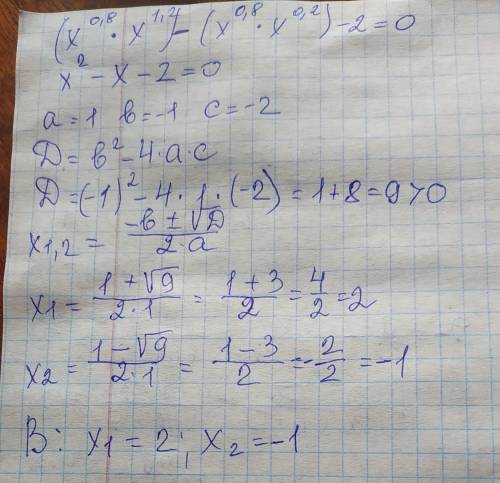 (x^0,8 · x^1,2) − (x^0,8 · x^0,2) − 2 = 0
x² − x − 2 = 0
a = 1 в = −1 c = −2
Д = в² − 4 · a · c
Д = (−1)² − 4 · 1 · (−2) = 1 + 8 = 9 > 0
x1,2 = (−в ± √Д) / (2 · a)
x1 = (1 + √9) / (2 · 1) = (1 + 3) / 2 = 4/2 = 2
x2 = (1 − √9) / (2 · 1) = (1 − 3) / 2 = −2/2 = −1
В: x1 = 2; x2 = −1